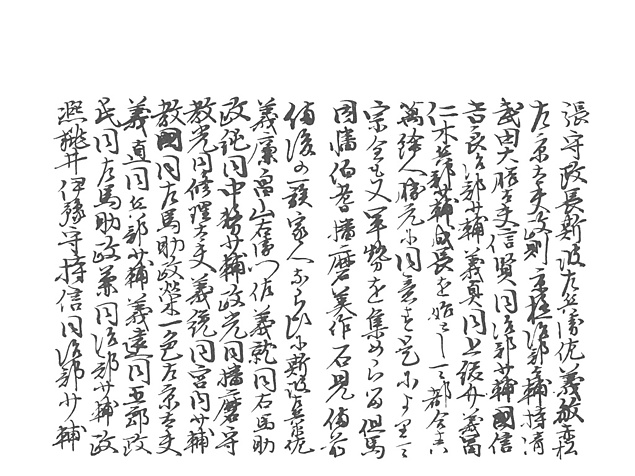 張守政長斯波左兵衛佐義敏赤松
左京大夫政則京極治部少輔持清
武田大膳大夫信賢同治部少輔國信
吉良治部少輔義真同上総介義富
仁木兵部少輔成長を始として都合
萬餘人勝元に同意す是により
宗全も又軍勢を集めらる但馬
因幡伯耆播磨美作石見備前
備後の一族家人ならびに斯波左兵衛佐
義廉畠山右衛門佐義就同右馬助
政純同中務少輔政光同播磨守
教光同修理大夫義統同宮内少輔
教國同左馬助政榮一色左京大夫
義直同兵部少輔義遠同五郎政
民同左馬助政兼同治部少輔政
熙桃井伊豫守持信同治部少輔